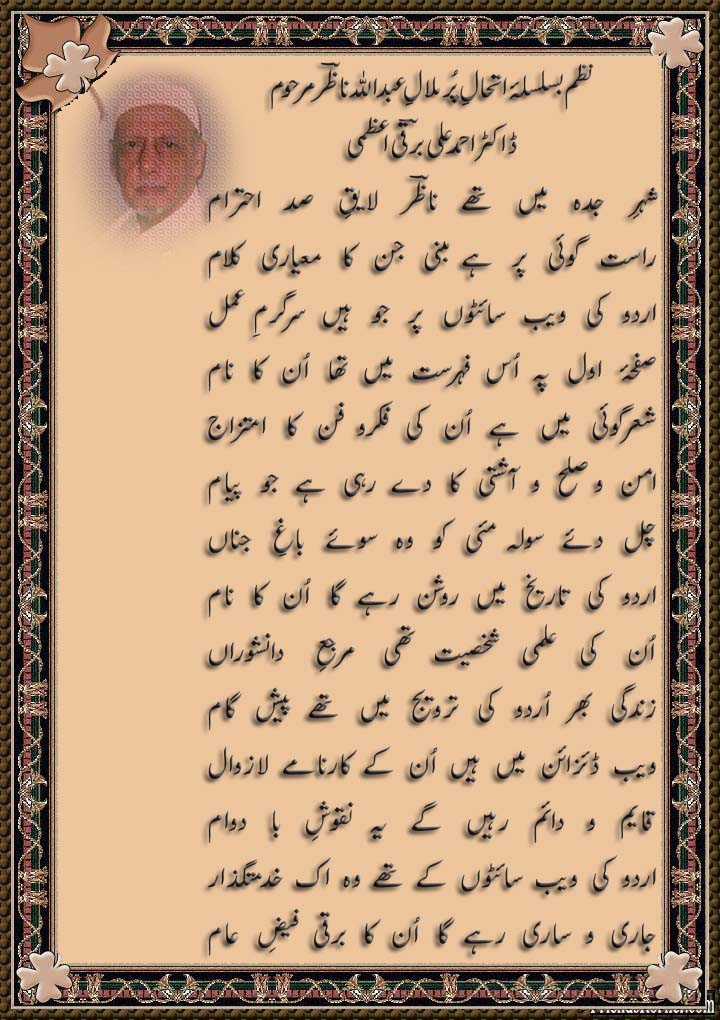 نظم بسلسلۂ انتحالِ پُر ملالِ عبداللہ ناظرؔ مرحوم
ڈاکٹر احمد علی برقیؔ اعظمی
شہرِ جدہ میں تھے ناظرؔ لایقِ صد احترام
راست گوئی پر ہے مبنی جن کا معیاری کلام
اردو کی ویب سائٹوں پر جو ہیں سرگرمِ عمل
صفحۂ اول پہ اُس فہرست میں تھا اُن کا نام
شعرگوئی میں ہے اُن کی فکرو فن کا امتزاج
امن و صلح و آشتی کا دے رہی ہے جو پیام
چل دئے سولہ مئی کو وہ سوئے باغِ جناں
اردو کی تاریخ میں روشن رہے گا اُن کا نام
اُن کی علمی شخصیت تھی مرجعِ دانشوراں
زندگی بھر اُردو کی ترویج میں تھے پیش گام
ویب ڈئزائن میں ہیں اُن کے کارنامے لازوال
قایم و دائم رہیں گے یہ نقوشِ با دوام
اردو کی ویب سائٹوں کے تھے وہ اک خدمتگذار
جاری و ساری رہے گا اُن کا برقی فیضِ عام